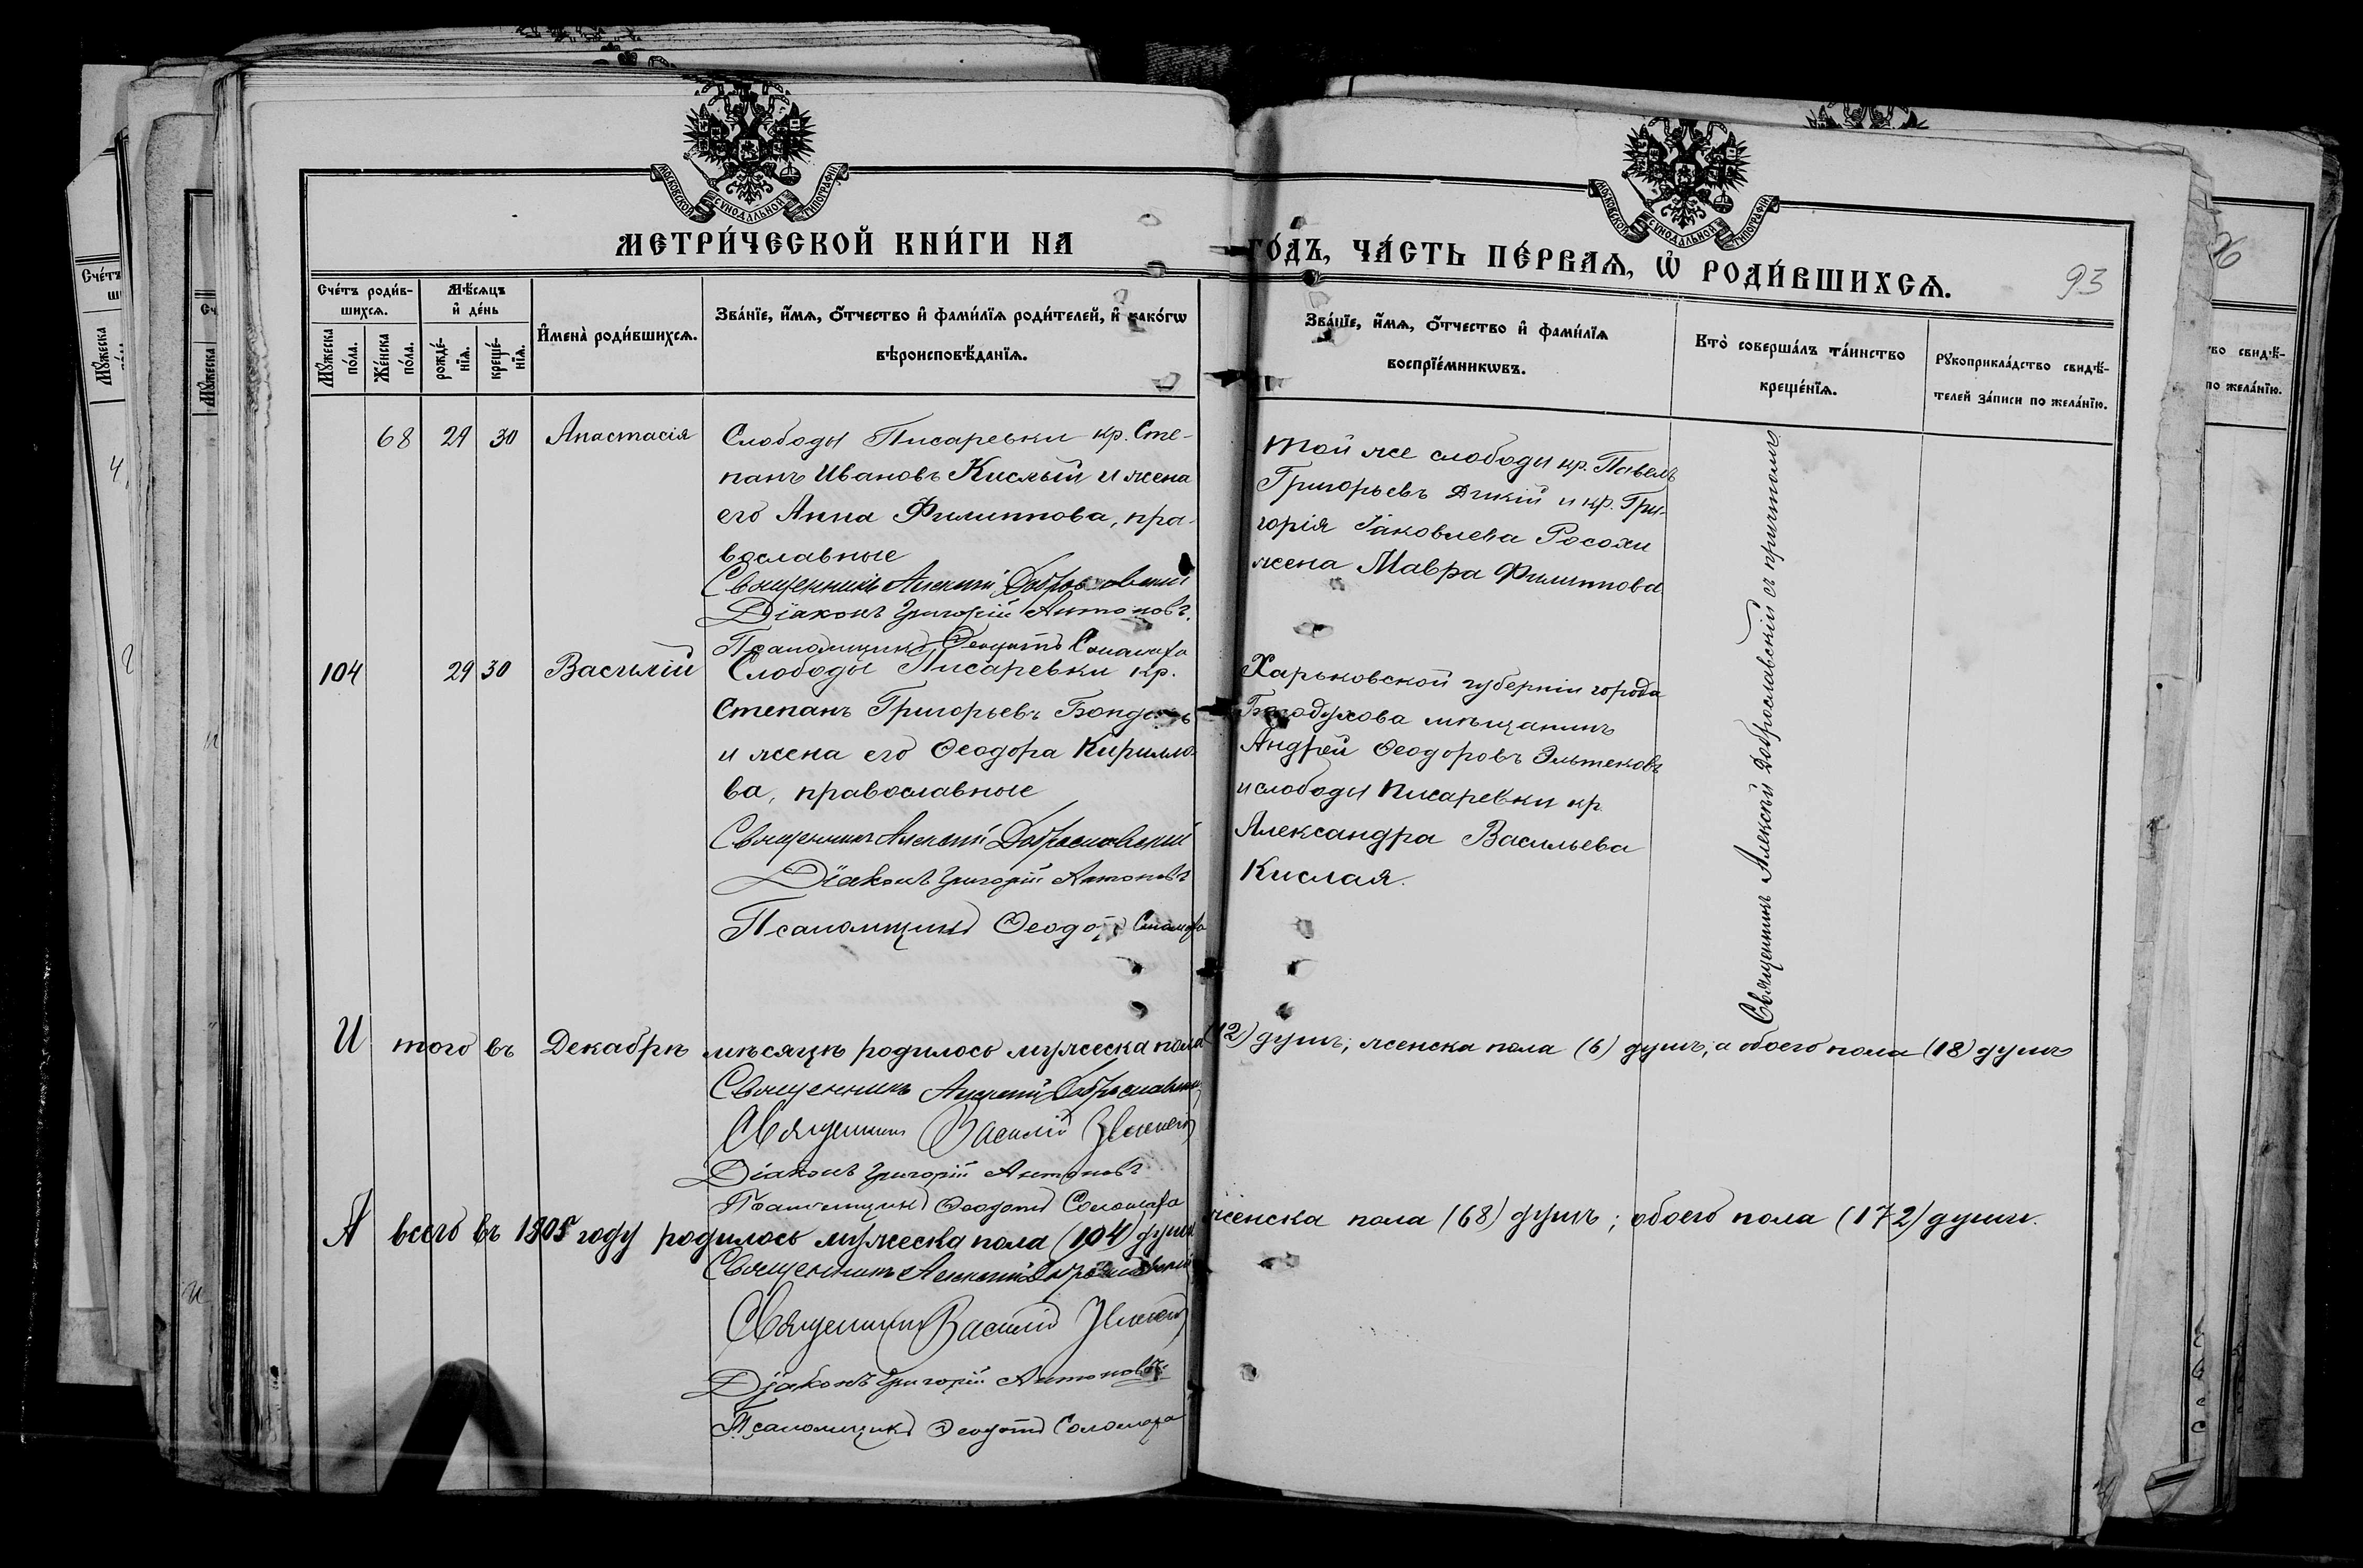 МОСКОВСКОЙ СУНОДАЛЬНОЙ ТИПОГРАФІИ
МОСКОВСКОЙ СУНОДАЛЬНОЙ ТИПОГРАФІИ
МЕТРИ́ЧЕСКОЙ КНИ́ГИ НА
ГО́ДЪ, ЧА́СТЬ ПЕ́РВАѦ, Ѡ҆ РОДИ́ВШИХСѦ.
93
Сче́тъ роди́в-
шихсѧ.
Мꙋ́жеска по́ла.
Же́нска по́ла.
Мѣ́сѧцъ
и҆ де́нь
рожде́-
нїѧ.
креще́-
нїѧ.
И҆мена̀ роди́вшихсѧ.
Зва́нїе, и҆́мѧ, ѻ҆́тчество и҆ фами́лїѧ роди́телей, и҆ како́гѡ
вѣроисповѣ́данїѧ.
Зва́нїе, и҆́мѧ, ѻ҆́тчество и҆ фами́лїѧ
воспрїе́мникѡвъ.
Кто̀ соверша́лъ та́инство
креще́нїѧ.
Рꙋкоприкла́дство свидѣ́-
телей за́писи по жела́нїю.
68 29 30 Анастасія
Слободы Писаревки кр. Сте-
панъ Ивановъ Кислый и жена
его Анна Филиппова, пра-
вославные
Священникъ Алексій Доброславскій
Діаконъ Григорій Антоновъ.
Псаломщикъ Ѳеодотъ Соломаха
той же слободы кр. Павелъ
Григорьевъ Дикій и кр. Гри-
горія Іаковлева Росохи
жена Мавра Филиппова
Священникъ Алексій Доброславскій съ причтомъ
104 29 30 Василій
Слободы Писаревки кр.
Степанъ Григорьевъ
и жена его Ѳеодора Кирилло-
ва, православные
Священникъ Алексій Доброславскій
Діаконъ Григорій Антоновъ
Псаломщикъ Ѳеодотъ Соломаха
Харьковской губерніи города
Богодухова мѣщанинъ
Андрей Ѳеодоровъ Эльтековъ
и слободы Писаревки кр.
Александра Васильева
Кислая.
И того въ Декабрѣ мѣсяцѣ родилось мужеска пола (12) душъ; женска пола (6) душъ; а обоего пола (18) душъ
Священникъ Алексій Доброславскій
Священникъ Василій
Діаконъ Григорій Антоновъ
Псаломщикъ Ѳеодотъ Соломаха
А всего въ 1905 году родилось мужеска пола (104) душъ женска пола (68) душъ; обоего пола (172) душъ.
Священникъ Алексій Доброславскій
Священникъ Василій
Діаконъ Григорій Антоновъ.
Псаломщикъ Ѳеодотъ Соломаха